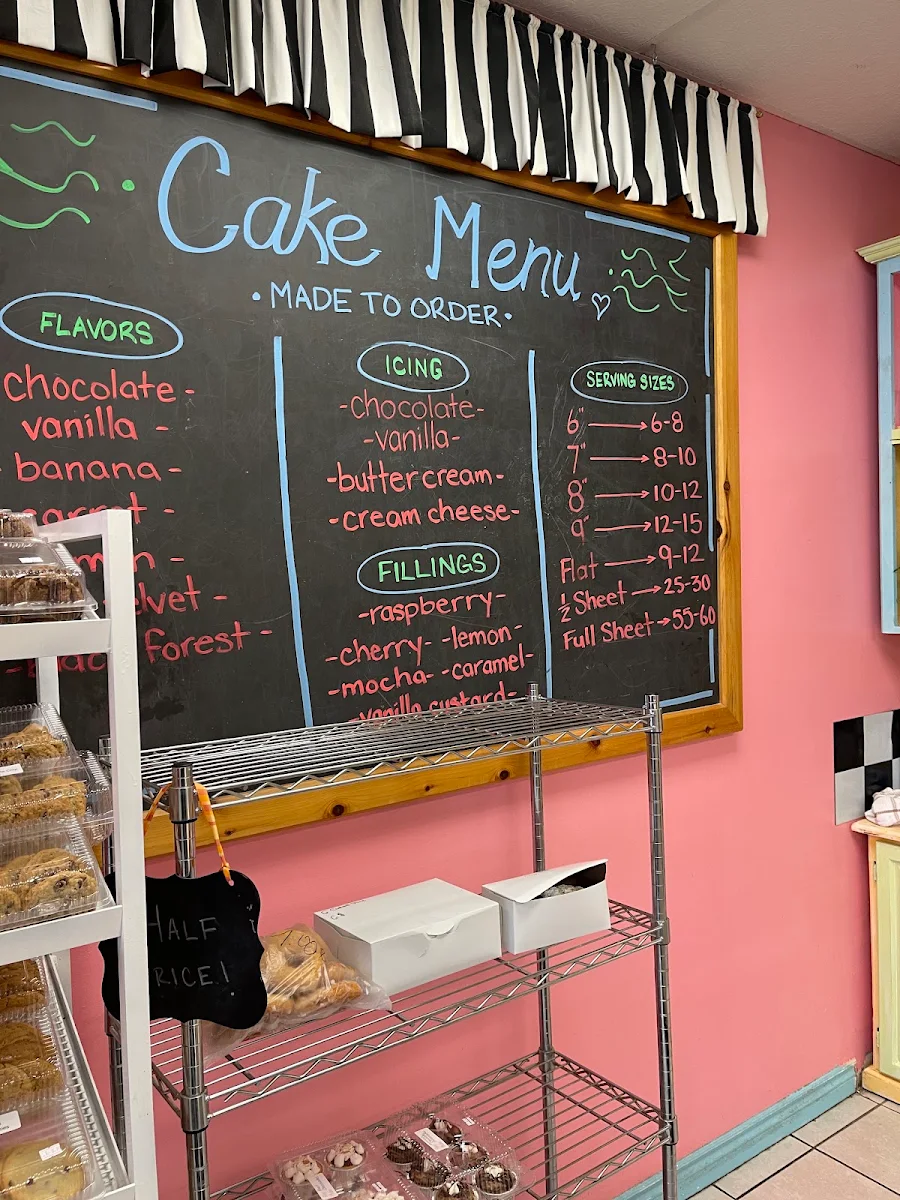 Cake Menu
• MADE TO ORDER •
FLAVORS
chocolate -
vanilla -
banana -
Forest -
ICING
-chocolate-
-vanilla-
-butter cream-
-cream cheese-
FILLINGS
-raspberry-
-cherry- -lemon-
-mocha- -caramel-
-vanilla custard-
SERVING SIZES
6" → 6-8
7" → 8-10
8" → 10-12
9" → 12-15
Flat → 9-12
1/2 Sheet → 25-30
Full Sheet → 55-60
HALF